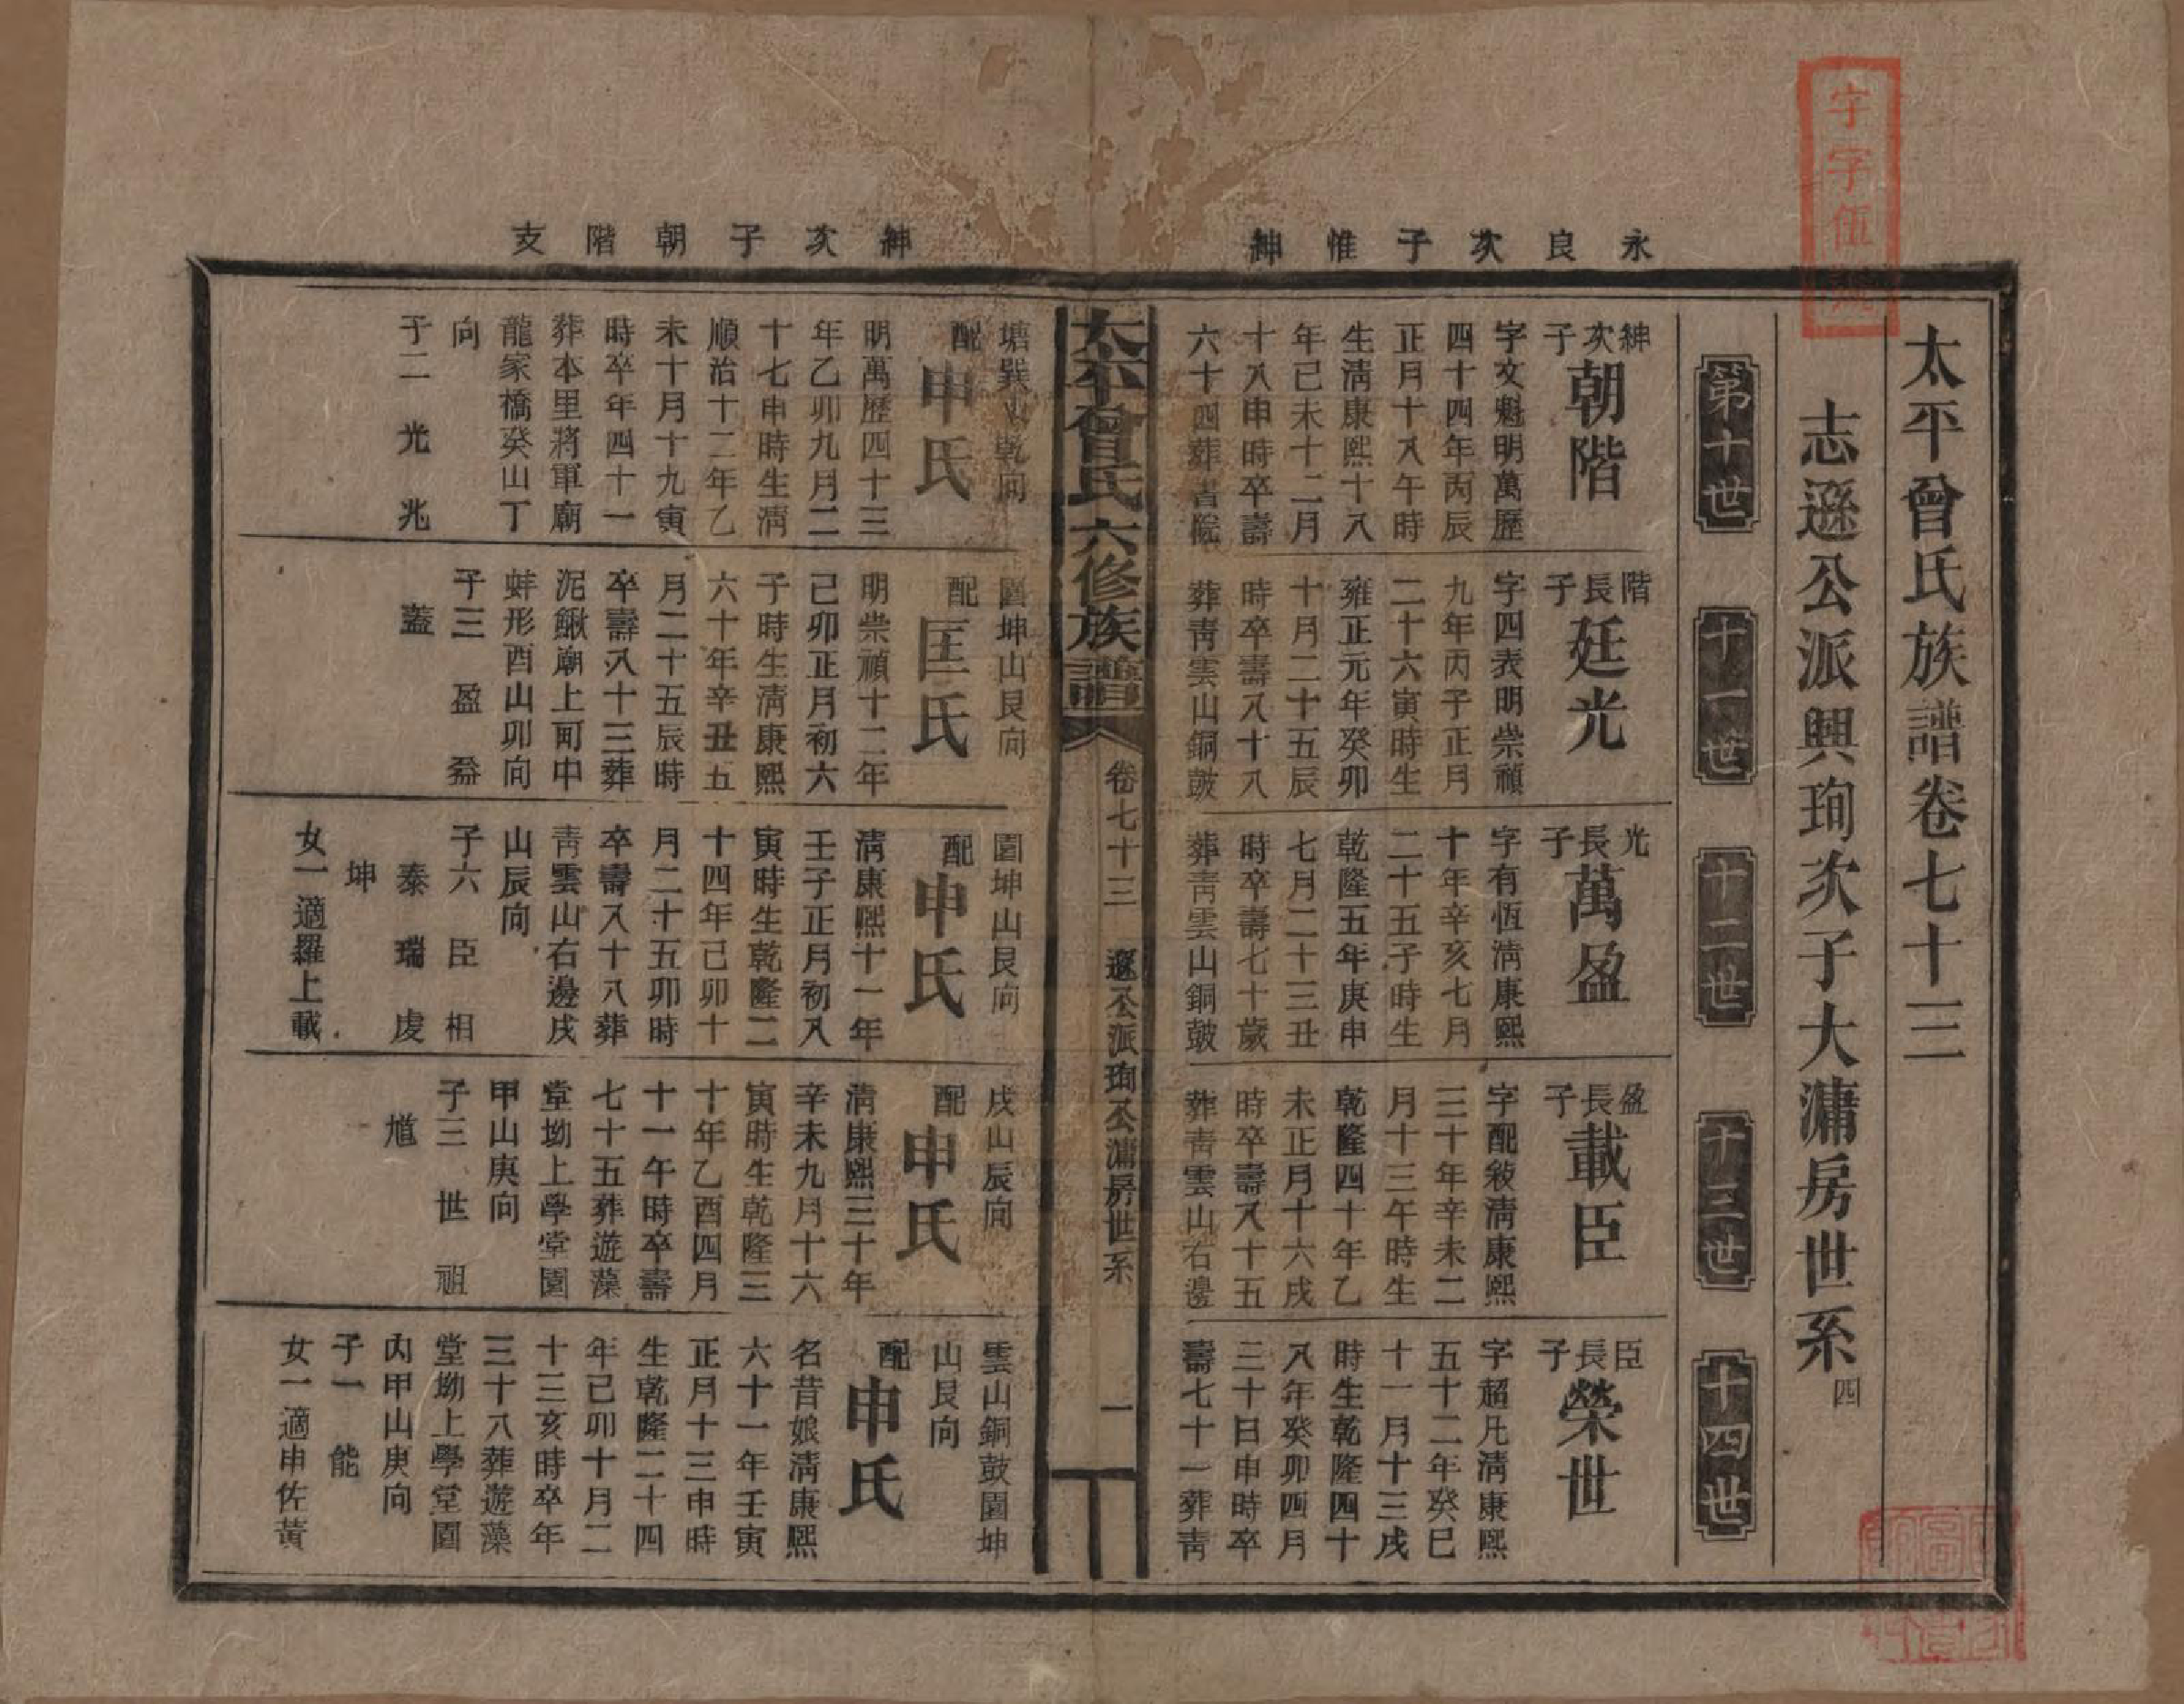 字字伍號
太平曾氏族譜卷七十三
志遜公派興珣次子大滽房世系四
第十世
十一世
十二世
十三世
十四世
永良次子惟紳
紳次子朝階支
紳次子
朝階
字文魁明萬歷
四十四年丙辰
正月十八午時
生淸康熙十八
年己未十二月
十八申時卒壽
六十四葬書院
塘巽山乾向
配
申氏
明萬歷四十三
年乙卯九月二
十七申時生淸
順治十二年乙
未十月十九寅
時卒年四十一
葬本里將軍廟
龍家橋癸山丁
向
子二 光 兆
階長子
廷光
字四表明崇禎
九年丙子正月
二十六寅時生
雍正元年癸卯
十月二十五辰
時卒壽八十八
葬靑雲山銅鼓
園坤山艮向
配
匡氏
明崇禎十二年
己卯正月初六
子時生淸康熙
六十年辛丑五
月二十五辰時
卒壽八十三葬
泥鰍廟上町中
蚌形酉山卯向
子三 盈 益
蓋
光長子
萬盈
字有恆淸康熙
十年辛亥七月
二十五子時生
乾隆五年庚申
七月二十三丑
時卒壽七十歲
葬靑雲山銅鼓
園坤山艮向
配
申氏
淸康熙十一年
壬子正月初八
寅時生乾隆二
十四年己卯十
月二十五卯時
卒壽八十八葬
靑雲山右邊戌
山辰向
子六 臣 相
泰 瑞 虔
坤
女一適羅上載
盈長子
載臣
字配敍淸康熙
三十年辛未二
月十三午時生
乾隆四十年乙
未正月十六戌
時卒壽八十五
葬靑雲山右邊
戌山辰向
配
申氏
淸康熙三十年
辛未九月十六
寅時生乾隆三
十年乙酉四月
十一午時卒壽
七十五葬遊藻
堂坳上學堂園
甲山庚向
子三 世 祖
尷
臣長子
榮世
字超凡淸康熙
五十二年癸巳
十一月十三戌
時生乾隆四十
八年癸卯四月
三十日申時卒
壽七十一葬靑
雲山銅鼓園坤
山艮向
配
申氏
名昔娘淸康熙
六十一年壬寅
正月十三申時
生乾隆二十四
年己卯十月二
十三亥時卒年
三十八葬遊藻
堂坳上學堂園
內甲山庚向
子一 能
女一適申佐黃
太平曾氏六修族譜
卷七十三
遜公派珣公滽房世系
一